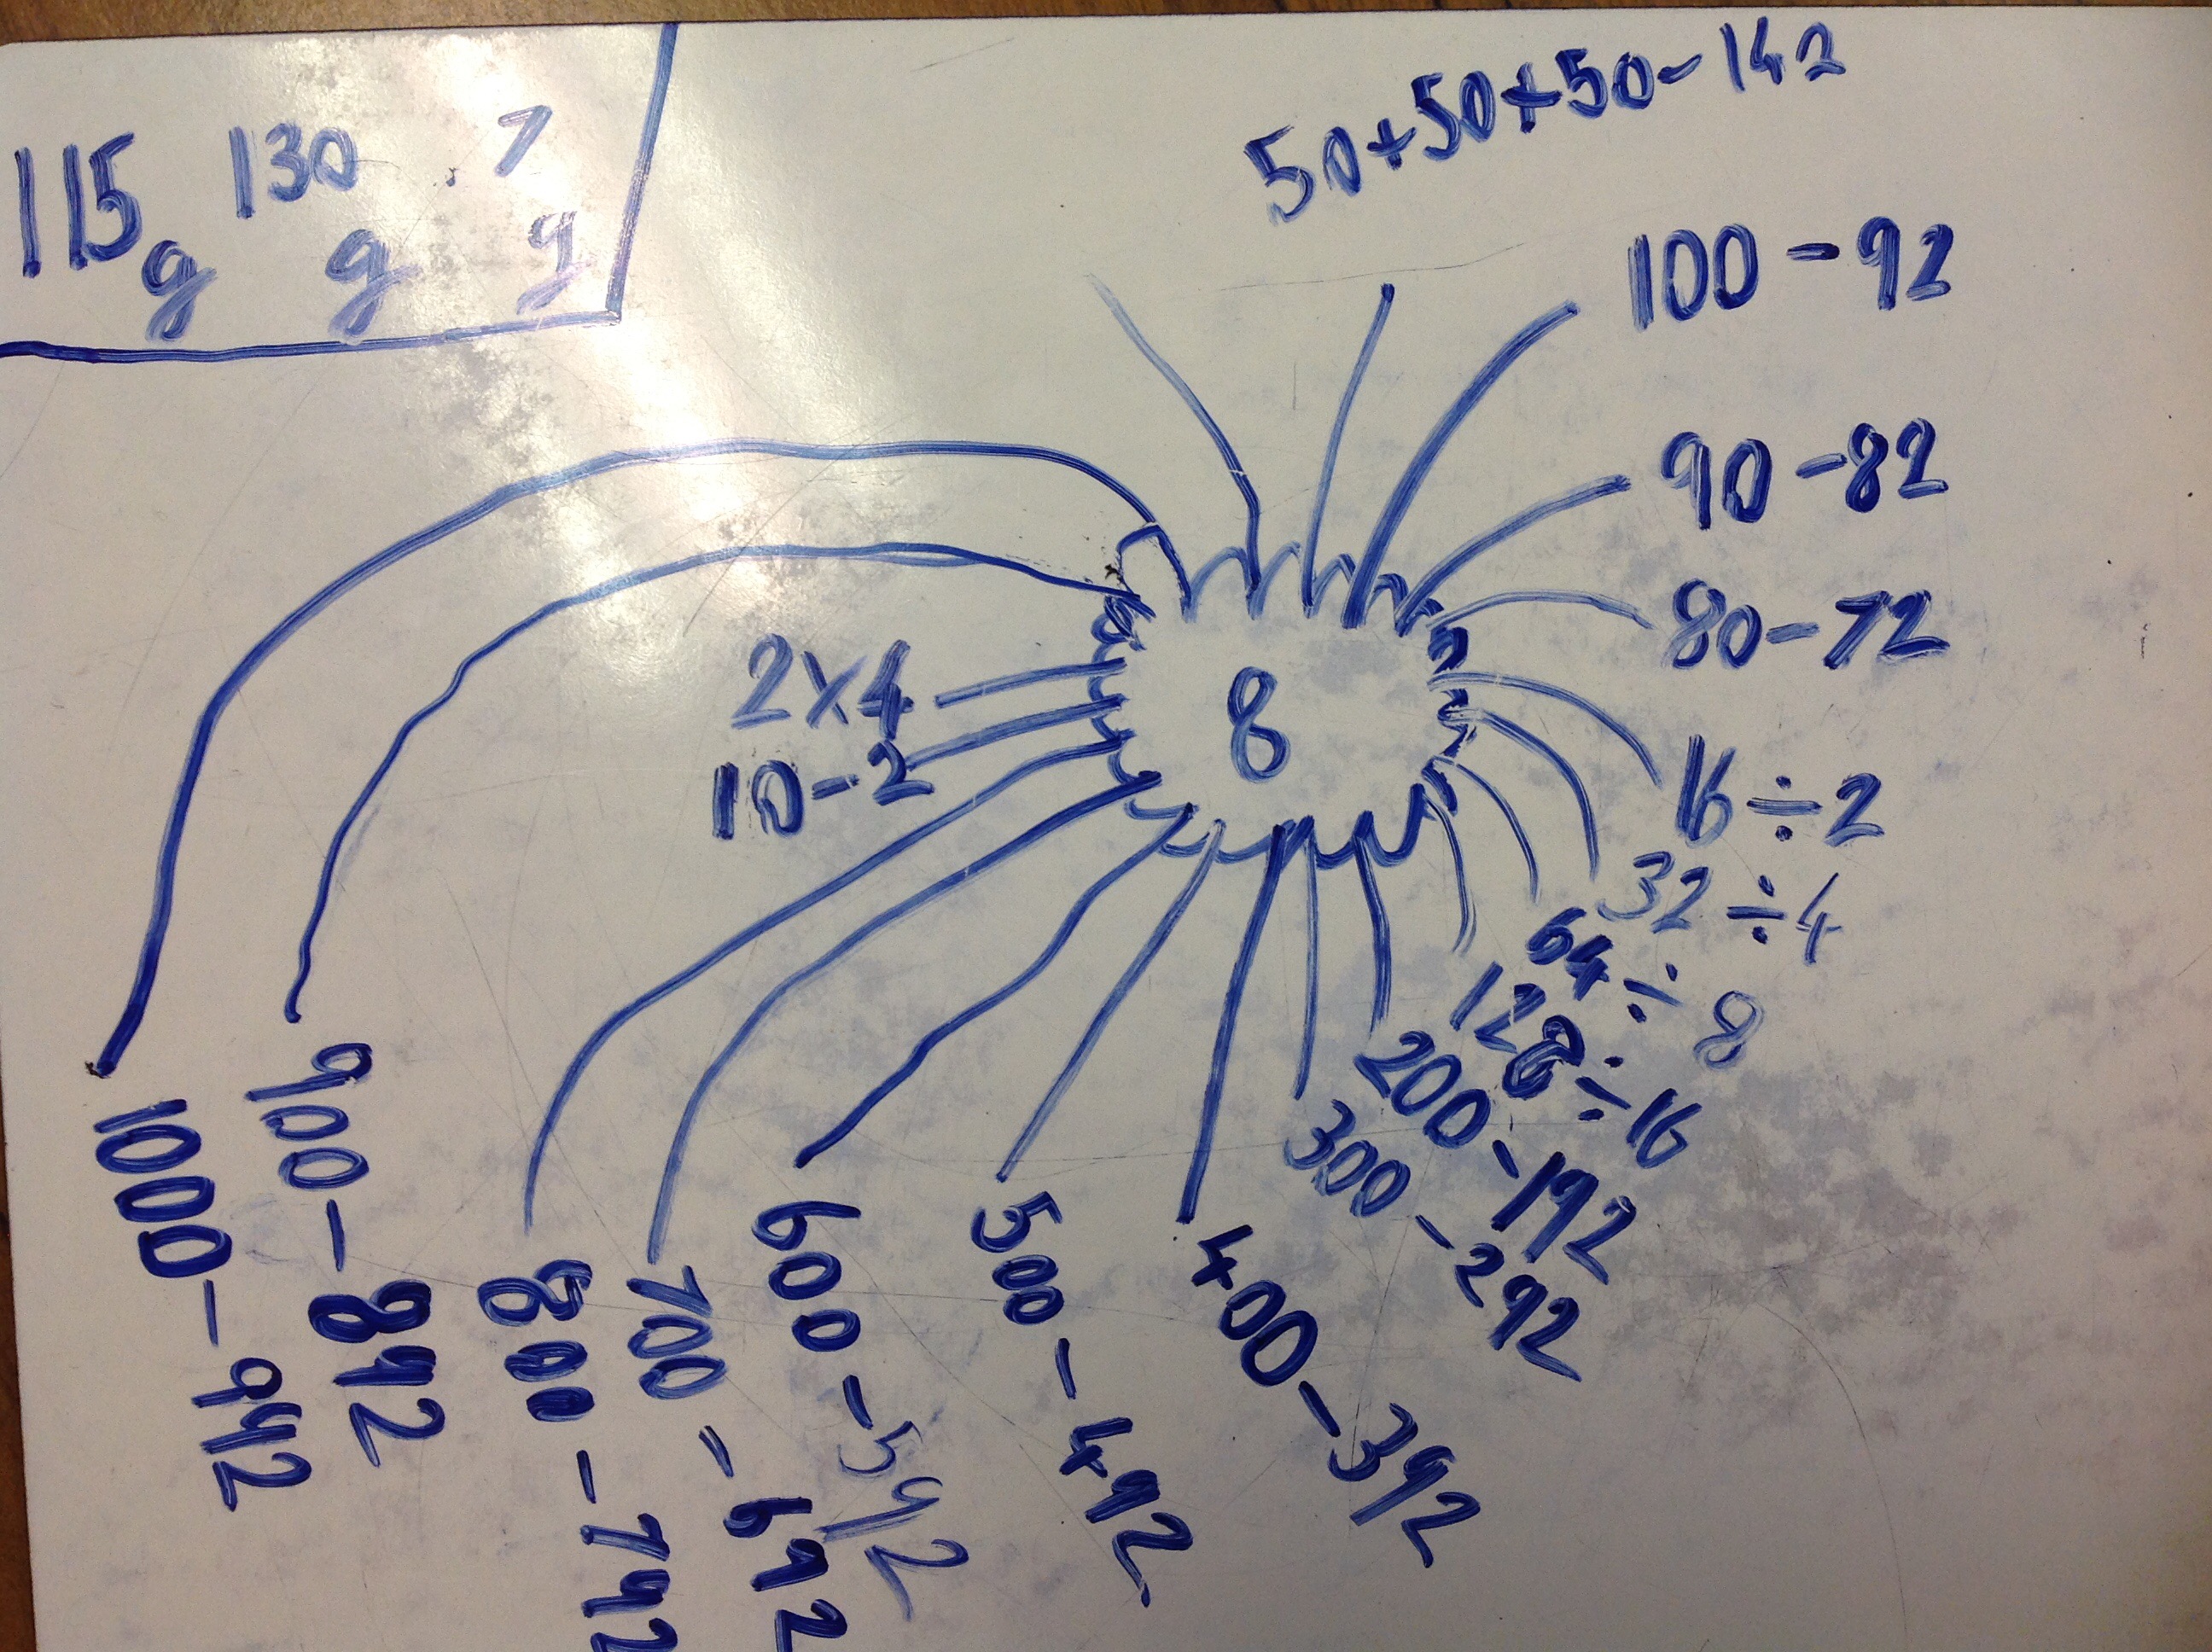 115g 130g 7g
50+50+50-142
100-92
90-82
80-72
2x4
8
10-2
16÷2
32÷4
64÷8
128÷16
200-192
300-292
400-392
500-492
600-592
700-692
800-792
900-892
1000-992